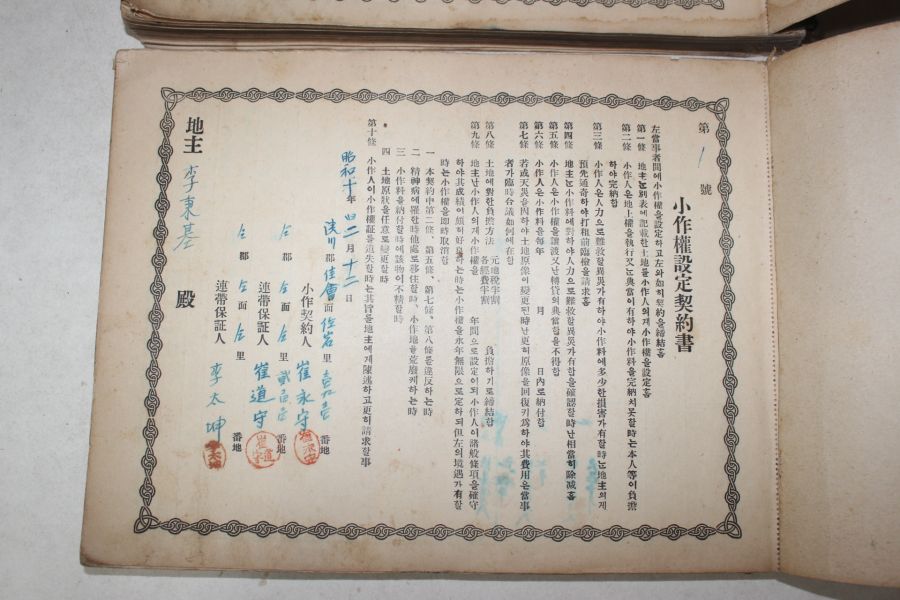 第 1 號
小作權設定契約書
左當事者間에小作權을設定하고左와如히契約을締結홈
第一條 地主는別表에記載한土地를小作人의게小作權을設定홈
第二條 小作人은地上權을執行又는典當이有하야小作料을完納치못할時는本人等이負擔
하야完納함
第三條 小作人은人力으로難救할異災가有하야小作料에多少한損害가有할時는地主의게
預先通奇하야打租前臨檢을請求홈
第四條 地主는小作料에對하야人力으로難救할異災가有함을確認할時난相當히除減홈
第五條 小作人은小作權을讓渡又난轉貸의典當함을不得함
第六條 小作人은小作料을每年 月 日內로納付함
第七條 若或天災을因하야土地原像이變更된時난更히原像을回復키爲하야其費用은當事
者가臨時合議如何에在함
第八條 土地에對한負擔方法 元地稅半割 各經費半割 負擔하기로締結함
第九條 地主난小作人의게小作權을 年間으로設定이되小作人이諸般條項을確守
하야其成績이頗히好良하는時는小作權을永年無限으로定하되但左의境遇가有할
時는小作權을即時取消함
一 本契約中第二條、第五條、第七條、第八條를違反하는時
二 精神病에罹한時他處로移住할時、小作地을荒廢케하는時
三 小作料을納付할時에該物이不精할時
四 土地原狀을任意로變更할時
第十條 小作人이小作權証을遺失할時는其旨을地主에게陳述하고更히請求할事
昭和十年 四二月十二日
陜川郡佳會面 里 番地
小作契約人 崔永守
仝郡仝面仝里 番地
連帶保証人 崔道守
仝郡仝面仝里 番地
連帶保証人 李太坤
地主 李東基 殿